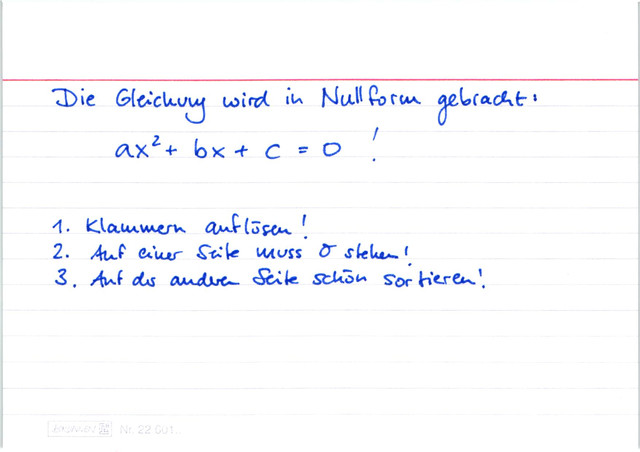 Die Gleichung wird in Nullform gebracht:
ax² + bx + c = 0 !
1. Klammern auflösen!
2. Auf einer Seite muss 0 stehen!
3. Auf der anderen Seite schön sortieren!
Nr. 22 501